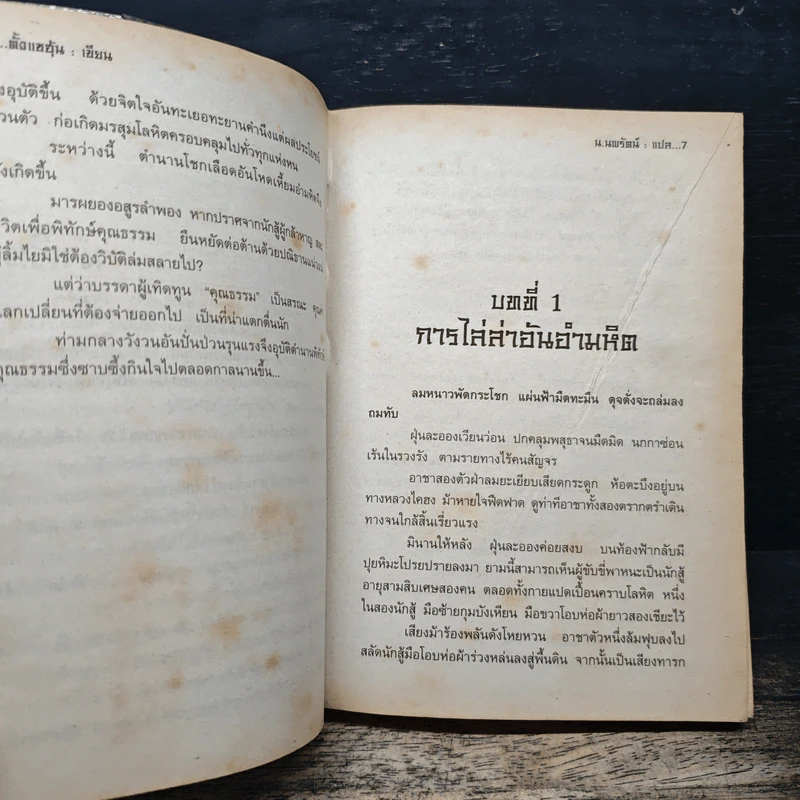 ...ตั้งแชฮุ้น : เขียน
งอุบัติขึ้น ด้วยจิตใจอันทะเยอทะยานคำนึงแต่ผลประโยชน์
วนตัว ก่อเกิดมรสุมโลหิตครอบคลุมไปทั่วทุกแห่งหน
ระหว่างนี้ ตำนานโชกเลือดอันโหดเหี้ยมอำมหิตจึง
ังเกิดขึ้น
มารผยองอสูรลำพอง หากปราศจากนักสู้ผู้กล้าหาญ
วิตเพื่อพิทักษ์คุณธรรม ยืนหยัดต่อต้านด้วยปณิธานแน่วแน่
ู้ลิ้มไยมิใช่ต้องวิบัติล่มสลายไป?
แต่ว่าบรรดาผู้เทิดทูน "คุณธรรม" เป็นสรณะ
แลกเปลี่ยนที่ต้องจ่ายออกไป เป็นที่น่าแตกตื่นนัก
ท่ามกลางวังวนอันปั่นป่วนรุนแรงจึงอุบัติตำนานพิทักษ์
คุณธรรมซึ่งซาบซึ้งกินใจไปตลอดกาลนานขึ้น...
น.นพรัตน์ : แปล...7
บทที่ 1
การไล่ล่าอันอำมหิต
ลมหนาวพัดกระโชก แผ่นฟ้ามืดทะมึน ดุจดั่งจะถล่มลง
ถมทับ
ฝุ่นละอองเวียนว่อน ปกคลุมพสุธาจนมืดมิด นกกาซ่อน
เร้นในรวงรัง ตามรายทางไร้คนสัญจร
อาชาสองตัวฝ่าลมยะเยียบเสียดกระดูก ห้อตะบึงอยู่บน
ทางหลวงไคฮง ม้าหายใจฟืดฟาด ดูท่าทีอาชาทั้งสองตรากตรำเดิน
ทางจนใกล้สิ้นเรี่ยวแรง
มินานให้หลัง ฝุ่นละอองค่อยสงบ บนท้องฟ้ากลับมี
ปุยหิมะโปรยปรายลงมา ยามนี้สามารถเห็นผู้ขับขี่พาหนะเป็นนักสู้
อายุสามสิบเศษสองคน ตลอดทั้งกายแปดเปื้อนคราบโลหิต หนึ่ง
ในสองนักสู้ มือซ้ายกุมบังเหียน มือขวาโอบห่อผ้ายาวสองเชียะไว้
เสียงม้าร้องพลันดังโหยหวน อาชาตัวหนึ่งล้มฟุบลงไป
สลัดนักสู้มือโอบห่อผ้าร่วงหล่นลงสู่พื้นดิน จากนั้นเป็นเสียงทารก